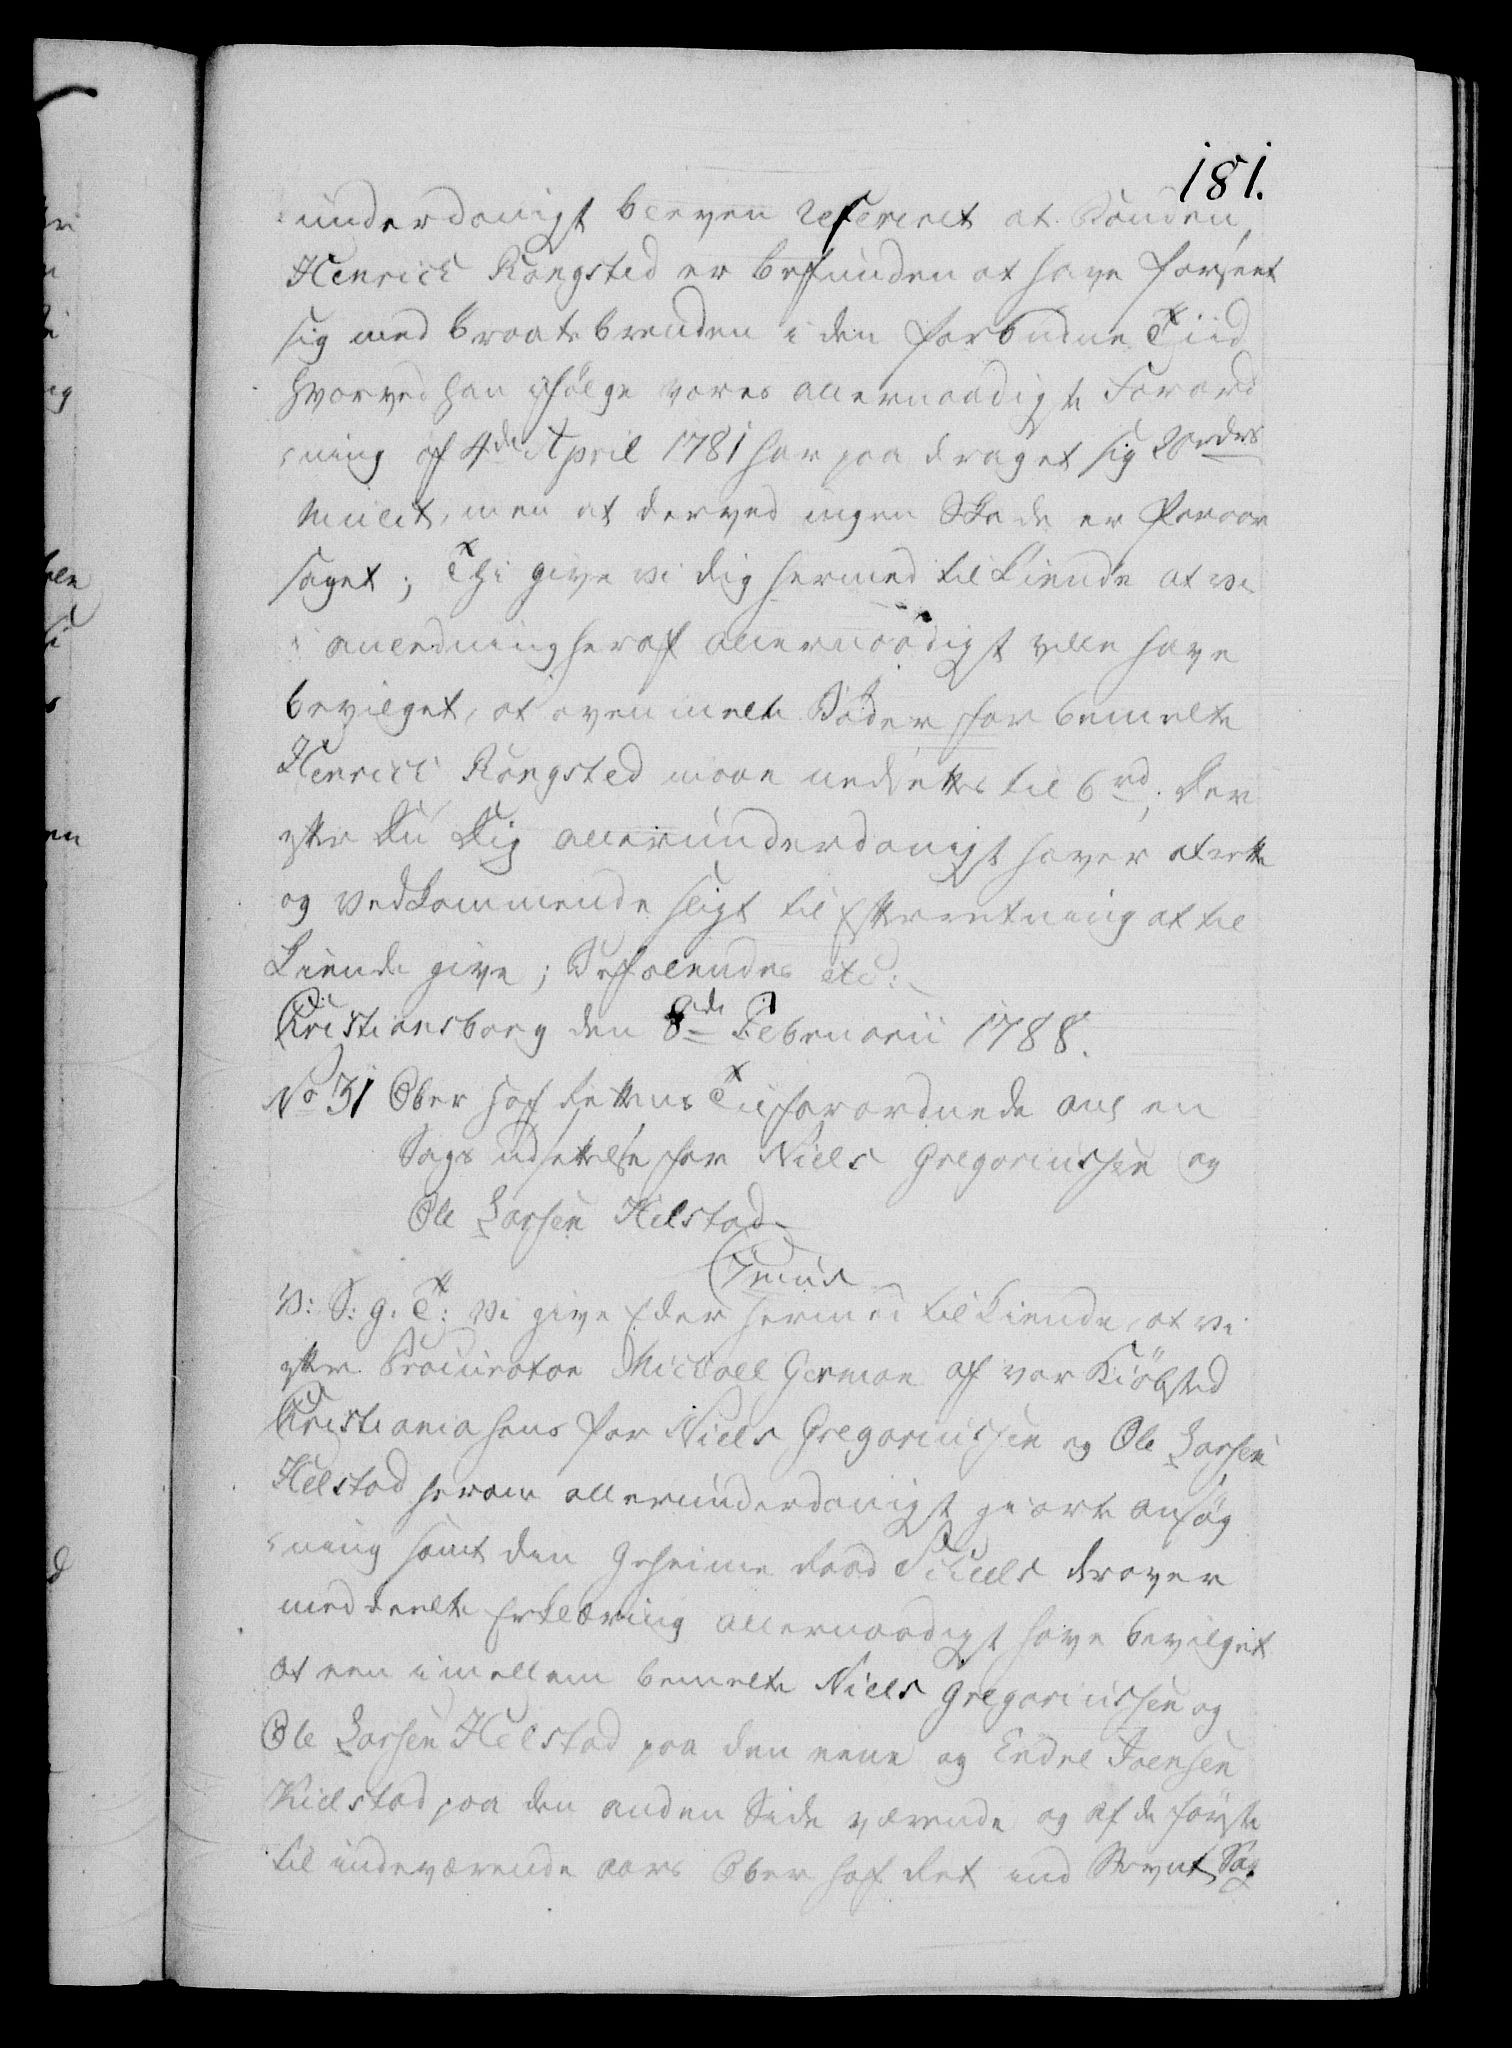 181.
underdanigst bleven refereret at Bonden,
Henrich Kongsted er befunden at have forseet
sig med braatebrenden i den forbudne Tiid
hvorved han ifølge vores allernaadigste Forord
ning af 4de April 1781 har paa draget sig 20 rdrs
Mulct, men at derved ingen Skade er foraar
saget; Thi give vi dig hermed til kiende at vi
i anledning heraf allernaadigst ville have
bevilget, at ovenmelte Bøder for bemelte
Henrich Kongsted maae nedsettes til 6 rd; Der
efter Du Dig allerunderdanigst haver at rette
og vedkommende sligt til Efterretning at til
kiende give; Befalendes etc:
Christiansborg den 8de Februarii 1788.
No 31 Ober hof Rettens Tilforordnede ang en
Sags udsettelse for Niels Gregoriussen og
Ole Larsen Kielstad
V: S: g: T: Vi give Eder hermed til kiende, at vi
efter Procurator Michael German af vor Kiøbsted
Christiania hans for Niels Gregoriussen og Ole Larsen
Kielstad herom allerunderdanigst giorte ansøg
ning samt den Geheime Raad Schiells derover
meddeelte Erklæring allernaadigst have bevilget
at een imellem bemelte Niels Gregoriussen og
Ole Larsen Kielstad paa den eene og Endre Joensen
Kielstad paa den anden Side værende og af de første
til indeværende aars Ober hof Ret ind Stevnt Sag